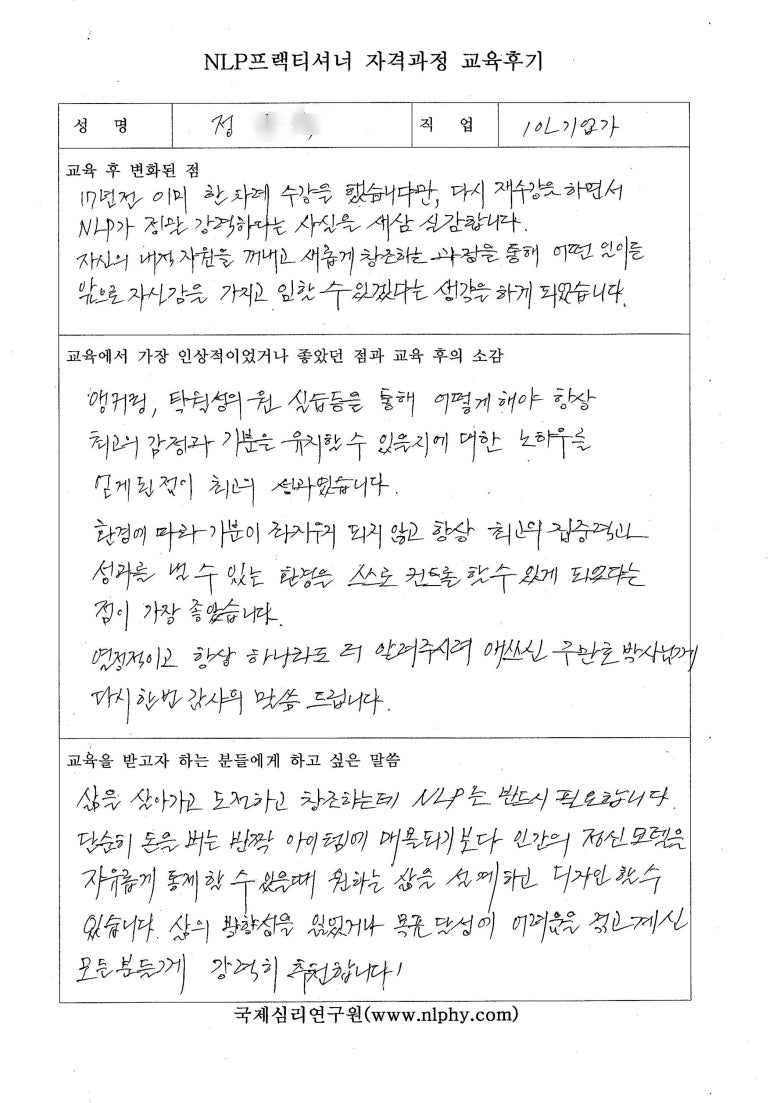 NLP프랙티셔너 자격과정 교육후기
성 명 정 직 업 1인기업가
교육 후 변화된 점
17년전 이미 한 차례 수강을 했습니다만, 다시 재수강을 하면서
NLP가 정말 강력하다는 사실을 새삼 실감합니다.
자신의 내적 자원을 꺼내고 새롭게 창조하는 과정을 통해 어떤 일이든
앞으로 자신감을 가지고 임할 수 있겠다는 생각을 하게 되었습니다.
교육에서 가장 인상적이었거나 좋았던 점과 교육 후의 소감
앵커링, 탁월성의 원 실습등을 통해 어떻게 해야 항상
최고의 감정과 기분을 유지할 수 있을지에 대한 노하우를
얻게 된 점이 최고의 성과였습니다.
환경에 따라 기분이 좌지우지 되지 않고 항상 최고의 집중력과
성과를 낼 수 있는 환경을 스스로 컨트롤 할 수 있게 되었다는
점이 가장 좋았습니다.
열정적이고 항상 하나라도 더 알려주시려 애쓰신 박사님께
다시 한번 감사의 말씀 드립니다.
교육을 받고자 하는 분들에게 하고 싶은 말씀
삶을 살아가고 도전하고 창조하는데 NLP는 반드시 필요합니다.
단순히 돈을 버는 반짝 아이템에 매몰되기보다 인간의 정신모델을
자유롭게 통제할 수 있을때 원하는 삶을 설계하고 디자인 할 수
있습니다. 삶의 방향성을 잃었거나 목표 달성에 어려움을 겪고 계신
모든 분들께 강력히 추천합니다!
국제심리연구원(www.nlphy.com)